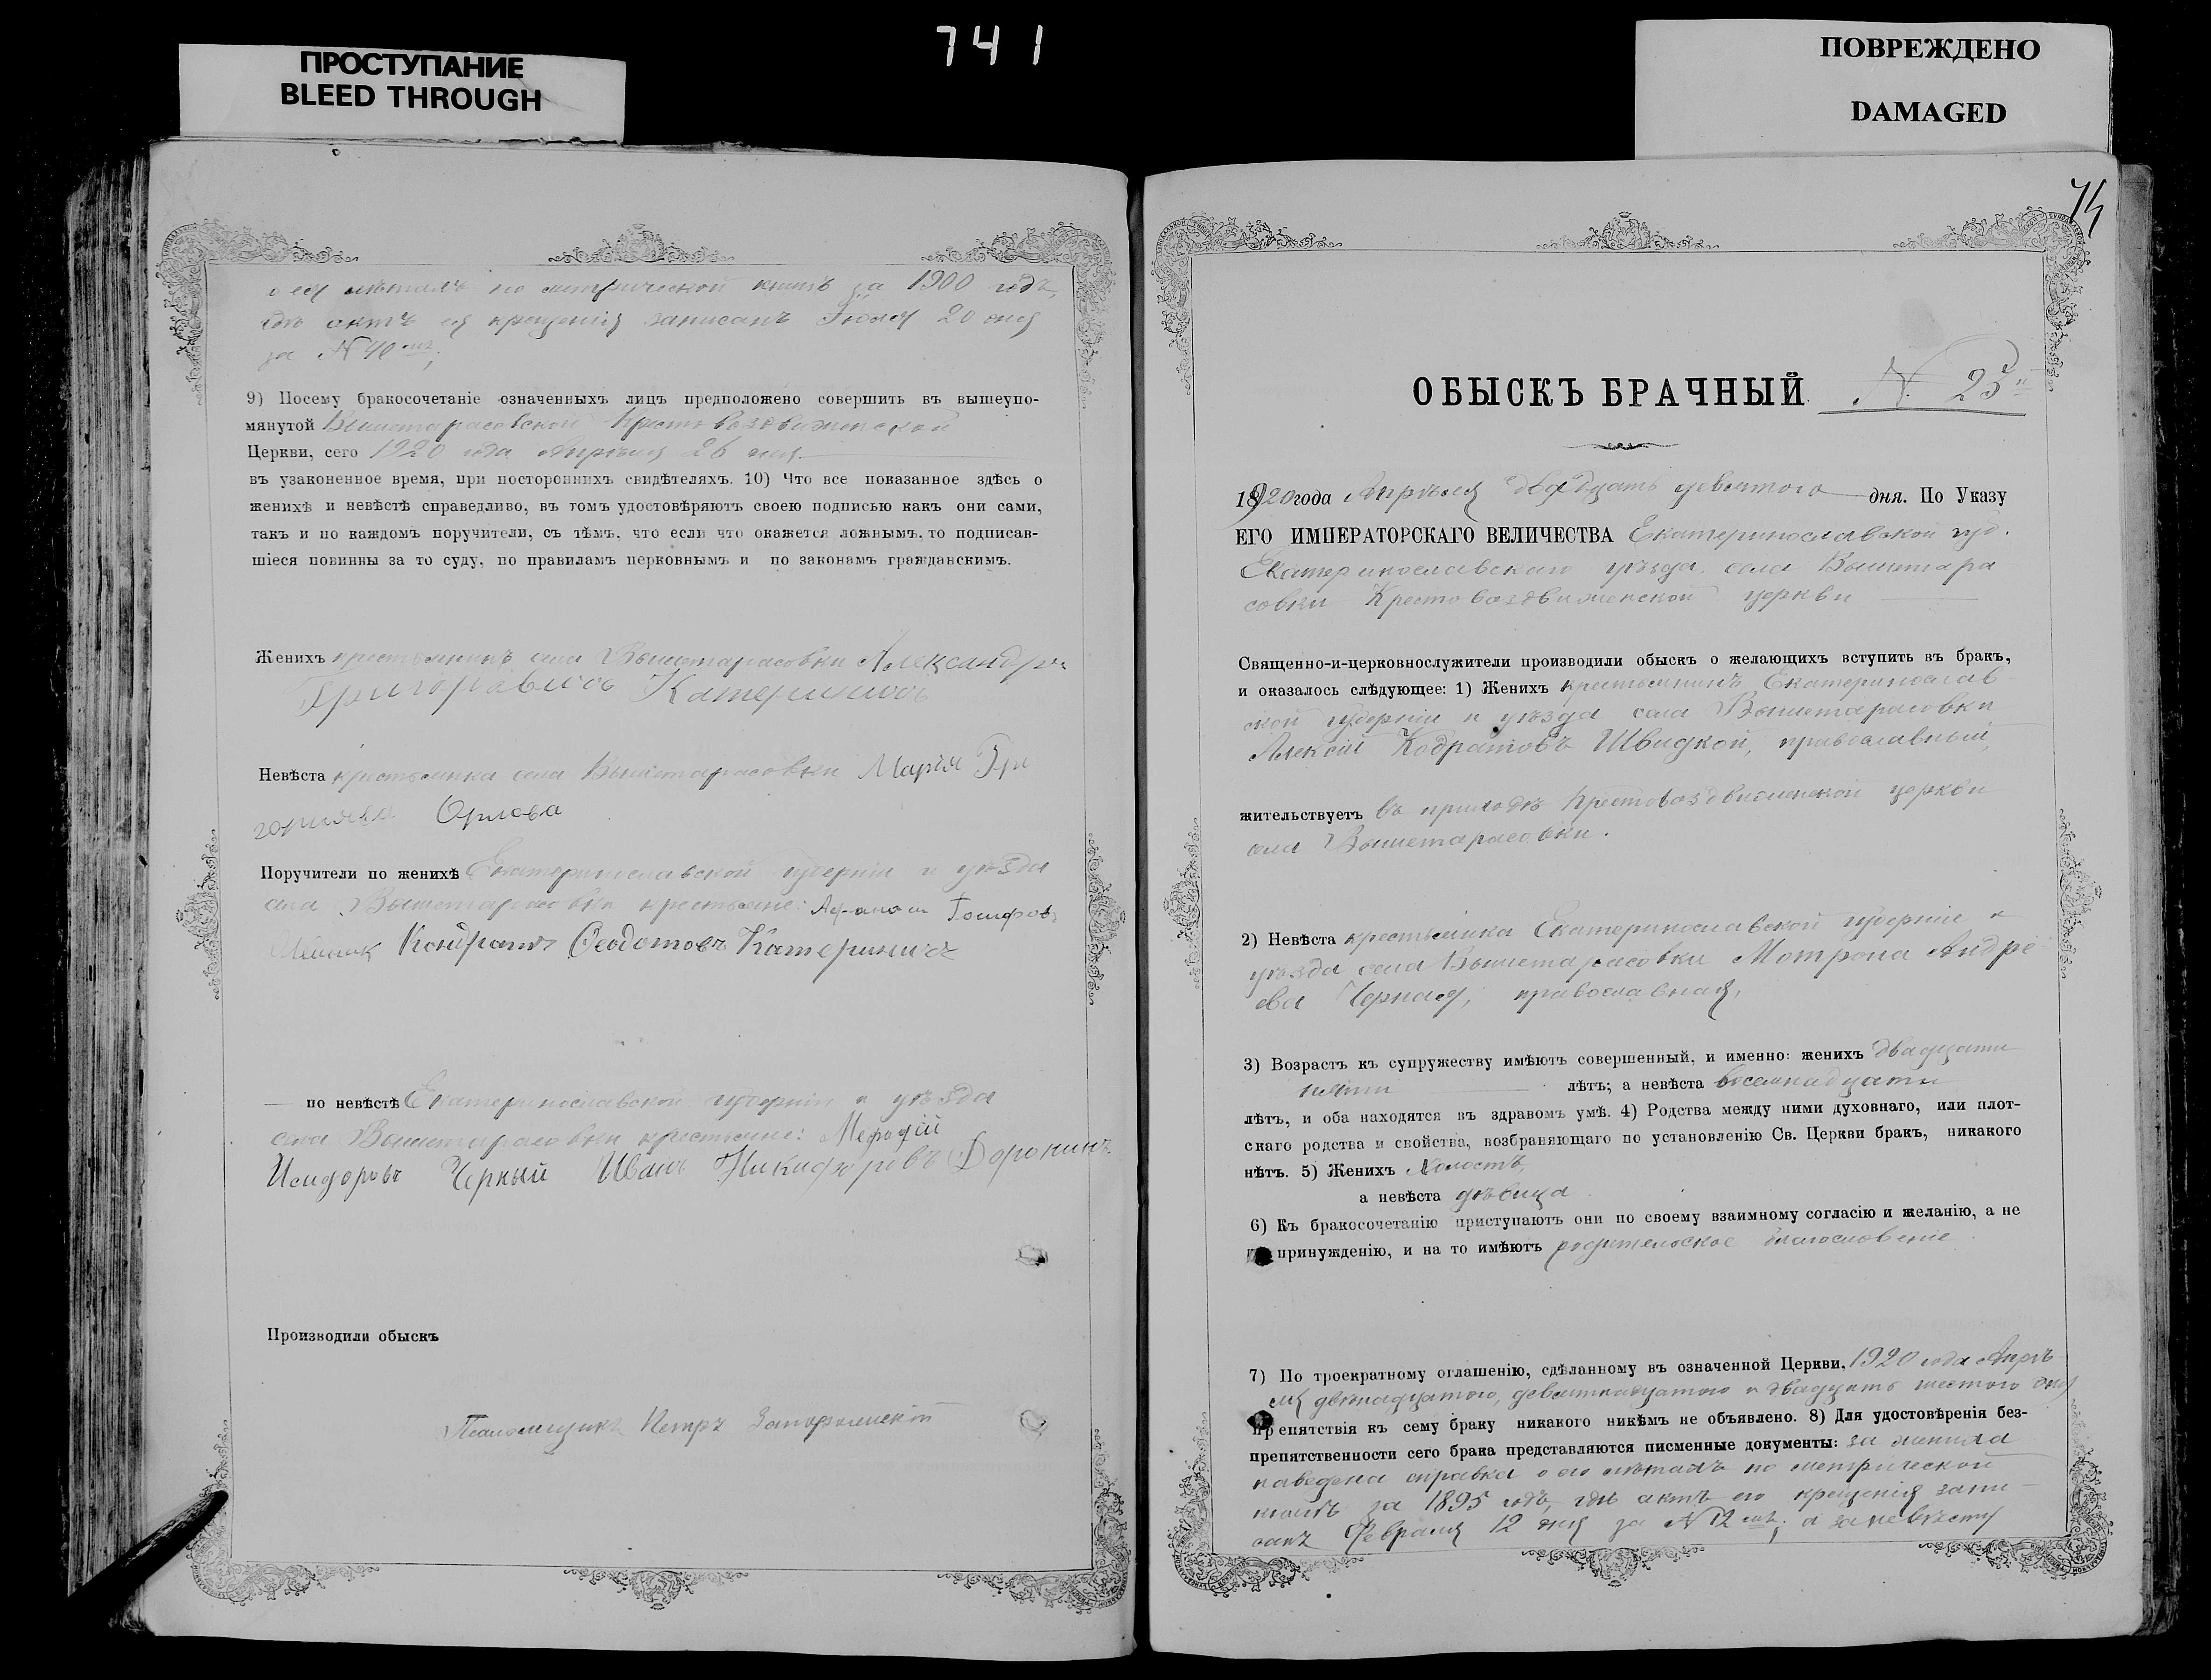 741
ПРОСТУПАНИЕ
BLEED THROUGH
ПОВРЕЖДЕНО
DAMAGED
о ея лѣтахъ по метрической книгѣ за 1900 годъ,
гдѣ актъ ея крещенія записанъ Іюля 20 дня
за N 40
9) Посему бракосочетаніе означенныхъ лицъ предположено совершить въ вышеупо-
мянутой Вышетарасовской Крестовоздвиженской
Церкви, сего 1920 года Апрѣля 26 дня.
въ узаконенное время, при постороннихъ свидѣтеляхъ. 10) Что все показанное здѣсь о
женихѣ и невѣстѣ справедливо, въ томъ удостовѣряютъ своею подписью какъ они сами,
такъ и по каждомъ поручители, съ тѣмъ, что если что окажется ложнымъ, то подписав-
шіеся повинны за то суду, по правиламъ церковнымъ и по законамъ гражданскимъ.
Женихъ крестьянинъ села Вышетарасовки Александръ
Невѣста крестьянка села Вышетарасовки Марія Гри
горіева Орлова
Поручители по женихѣ Екатеринославской губерніи и уѣзда
села Вышетарасовки крестьяне:
Кондратъ Ѳеодотовъ Катериничъ
по невѣстѣ Екатеринославской губерніи и уѣзда
села Вышетарасовки крестьяне: Мефодій
Исидоровъ Черный Иванъ Никифоровъ Доронинъ
Производили обыскъ
Псаломщикъ Петръ Запорожскій
74
ОБЫСКЪ БРАЧНЫЙ N. 25
1920 года Апрѣля двадцать девятого дня. По Указу
ЕГО ИМПЕРАТОРСКАГО ВЕЛИЧЕСТВА Екатеринославской губ.
Екатеринославскаго уѣзда, села Вышетара
совки Крестовоздвиженской церкви
Священно-и-церковнослужители производили обыскъ о желающихъ вступить въ бракъ,
и оказалось слѣдующее: 1) Женихъ крестьянинъ Екатеринослав
ской губерніи и уѣзда села Вышетарасовки
Алексій Кодратовъ Швидкой, православный,
жительствуетъ въ приходѣ Крестовоздвиженской церкви
села Вышетарасовки.
2) Невѣста крестьянка Екатеринославской губерніи и
уѣзда села Вышетарасовки Мотрона Андре
ева Черная, православная,
3) Возрастъ къ супружеству имѣютъ совершенный, и именно: женихъ двадцати
пяти лѣтъ; а невѣста восемнадцати
лѣтъ, и оба находятся въ здравомъ умѣ. 4) Родства между ними духовнаго, или плот-
скаго родства и свойства, возбраняющаго по установленію Св. Церкви бракъ, никакого
нѣтъ. 5) Женихъ холостъ,
а невѣста дѣвица.
6) Къ бракосочетанію приступаютъ они по своему взаимному согласію и желанію, а не
принужденію, и на то имѣютъ родительское благословеніе.
7) По троекратному оглашенію, сдѣланному въ означенной Церкви, 1920 года Апрѣ
ля двѣнадцатого, девятнадцатого и двадцать шестого дня
препятствія къ сему браку никакого никѣмъ не объявлено. 8) Для удостовѣренія без-
препятственности сего брака представляются писменные документы: за жениха
наведена справка о его лѣтахъ по метрической
книгѣ за 1895 годъ, гдѣ актъ его крещенія запи-
санъ Февраля 12 дня за N 12; а за невѣсту